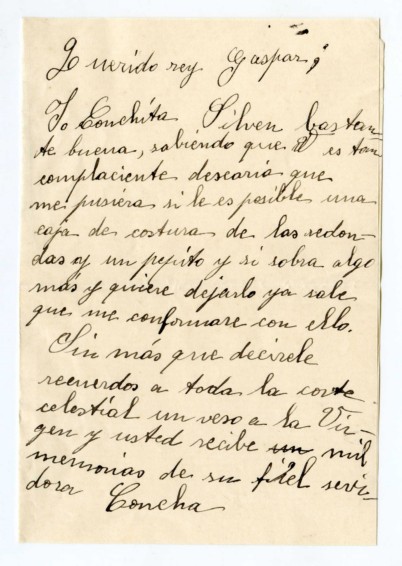 Querido rey Gaspar;
Yo Conchita Silven bastan-
te buena, sabiendo que V es tan
complaciente desearia que
me pusiera si le es posible una
caja de costura de las redon-
das y un pepito y si sobra algo
más y quiere dejarlo ya sabe
que me conformare con ello.
Sin más que decirle
recuerdos a toda la corte
celestial un veso a la Vir-
gen y usted recibe un mil
memorias de su fiel servi-
dora Concha